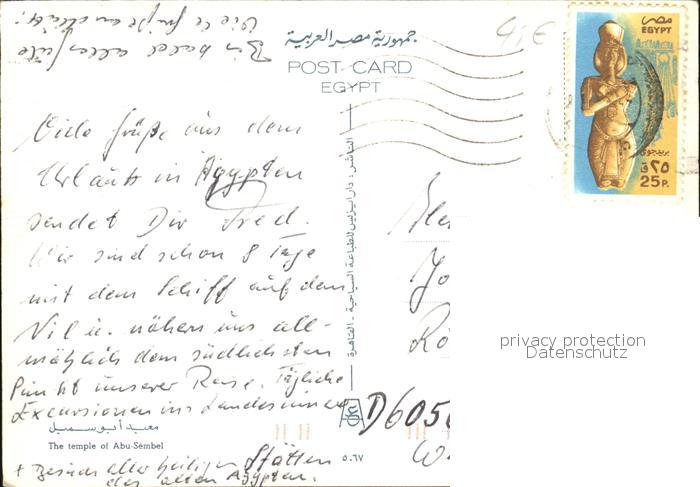 جمهورية مصر العربية
POST CARD
EGYPT
مصر
EGYPT
بريد جوى
٢٥ ق
25P.
4,5 €
Viele Grüße aus dem
Urlaub in Ägypten
sendet Dir Fred.
Wir sind schon 8 Tage
mit dem Schiff auf dem
Nil u. nähern uns all-
mählich dem südlichsten
Punkt unserer Reise. Tägliche
Excursionen ins Landesinnere
+ Besuch aller heiligen Stätten
des alten Ägypten.
Bis bald alles Gute
Viele Grüße an
معبد أبو سمبل
The temple of Abu-Sembel
٥٠٦٧
الناشر: دار ايزيس للطباعة السياحية - القاهرة
D605
W
privacy protection
Datenschutz